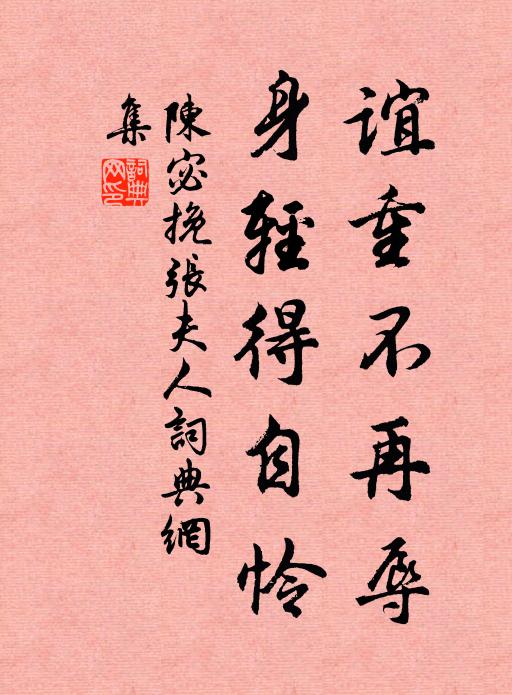 誼重不再辱
身輕得自怜
陳宓挽張夫人詞典網
集
詞典網印